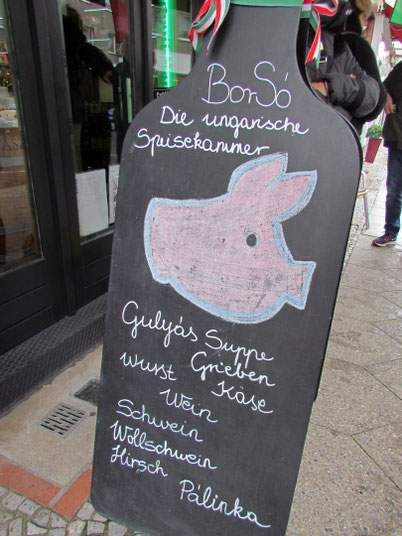 BorSó
Die ungarische
Speisekammer
Gulyás Suppe
Grieben
Wurst Käse
Wein
Schwein
Wollschwein
Hirsch
Pálinka